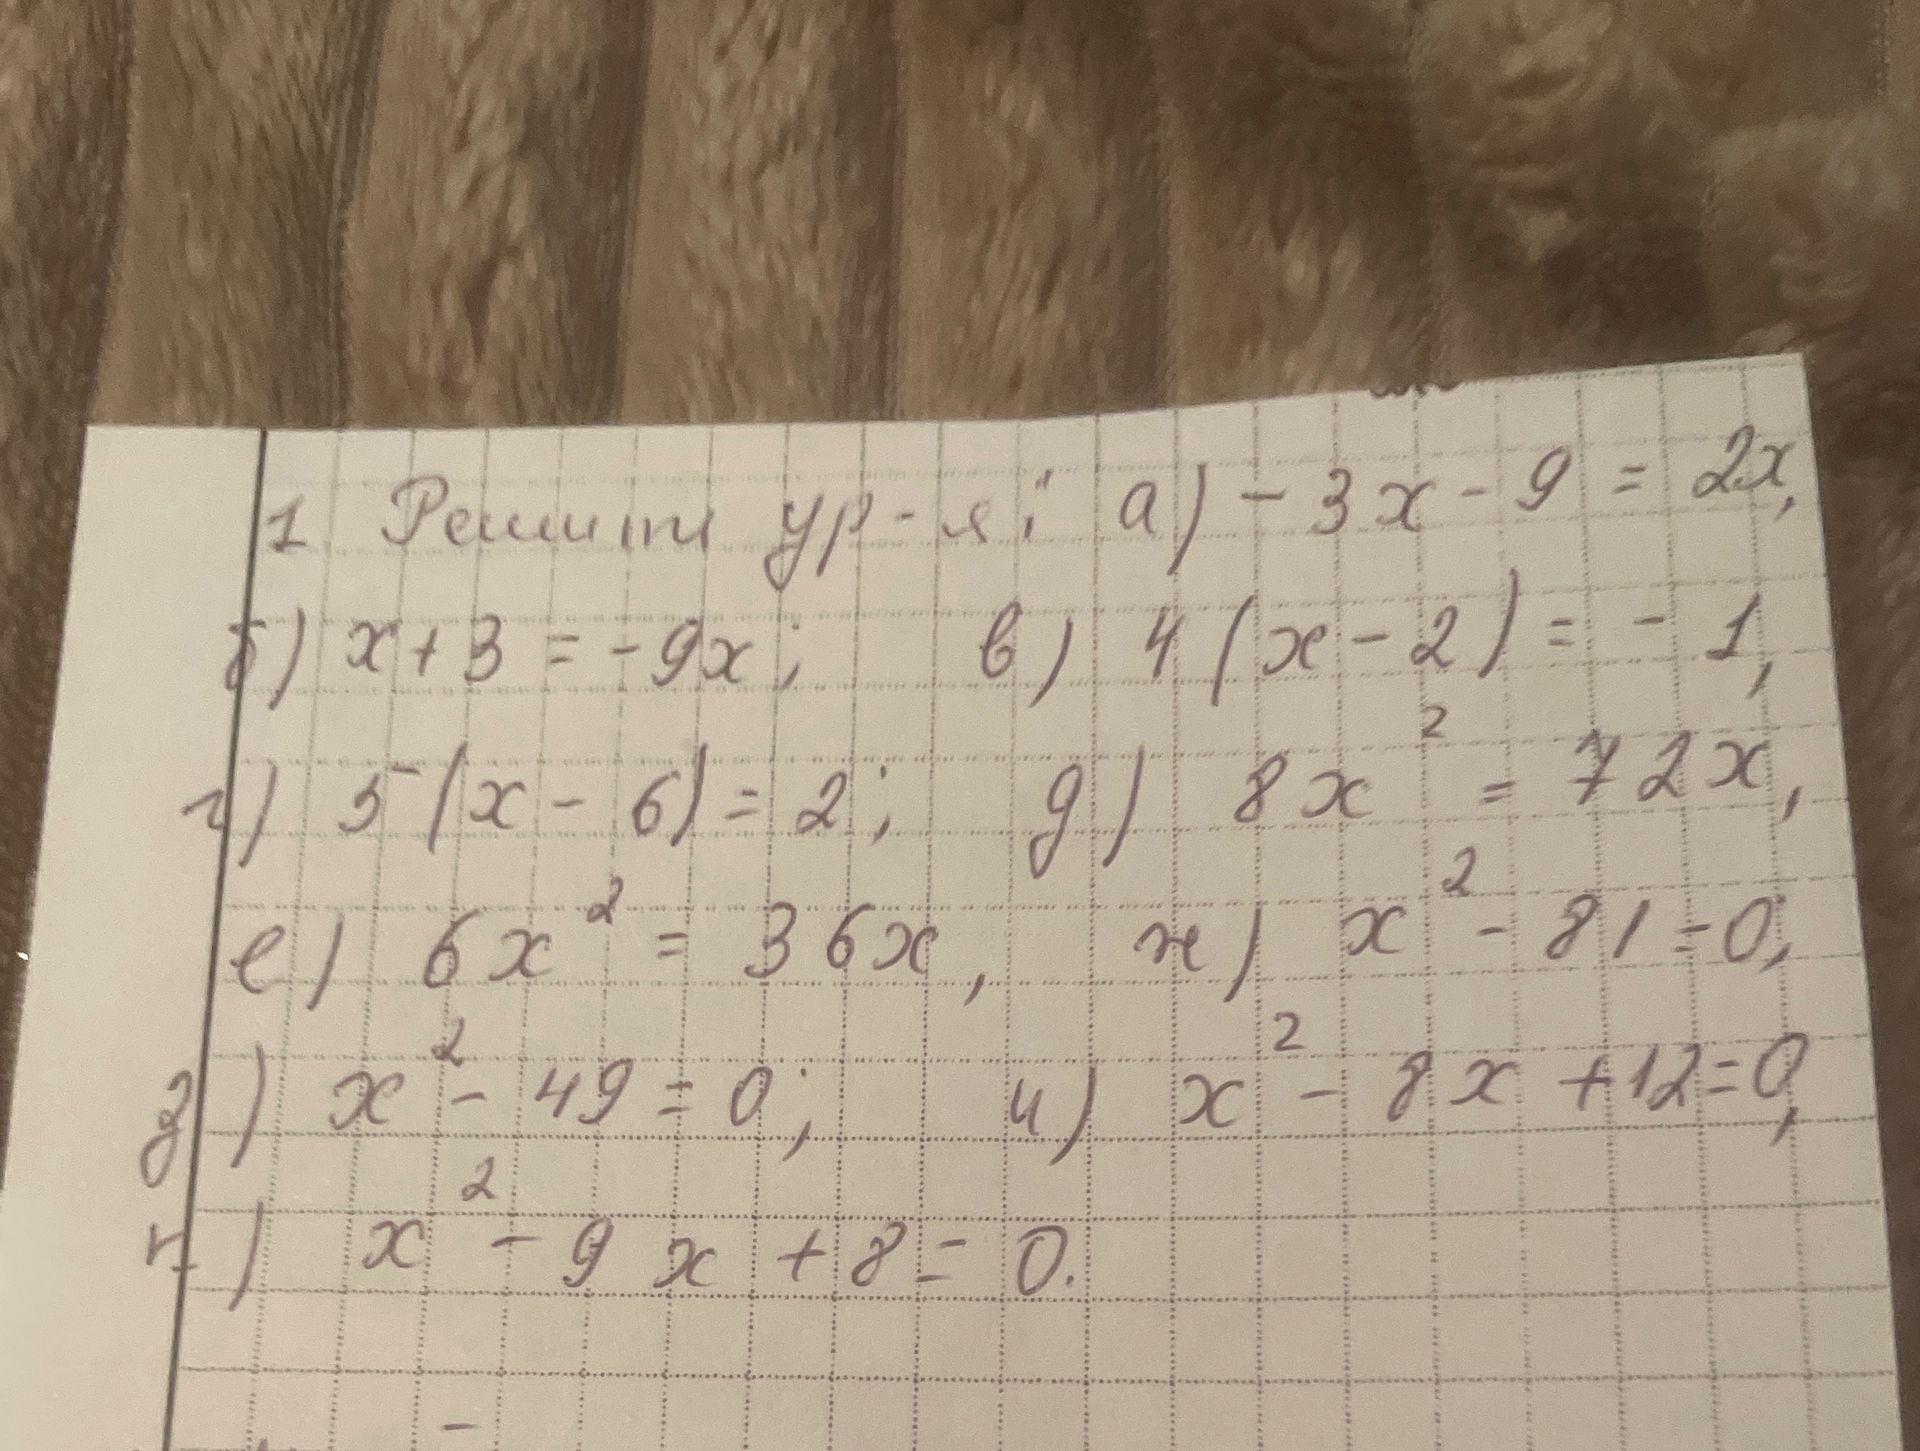 1 Решить ур-я: а) - 3x - 9 = 2x,
б) x + 3 = -9x; в) 4 (x - 2) = - 1,
г) 5 (x - 6) = 2; д) 8x² = 72x,
е) 6x² = 36x, ж) x² - 81 = 0,
з) x² - 49 = 0; и) x² - 8x + 12 = 0,
к) x² - 9x + 8 = 0.